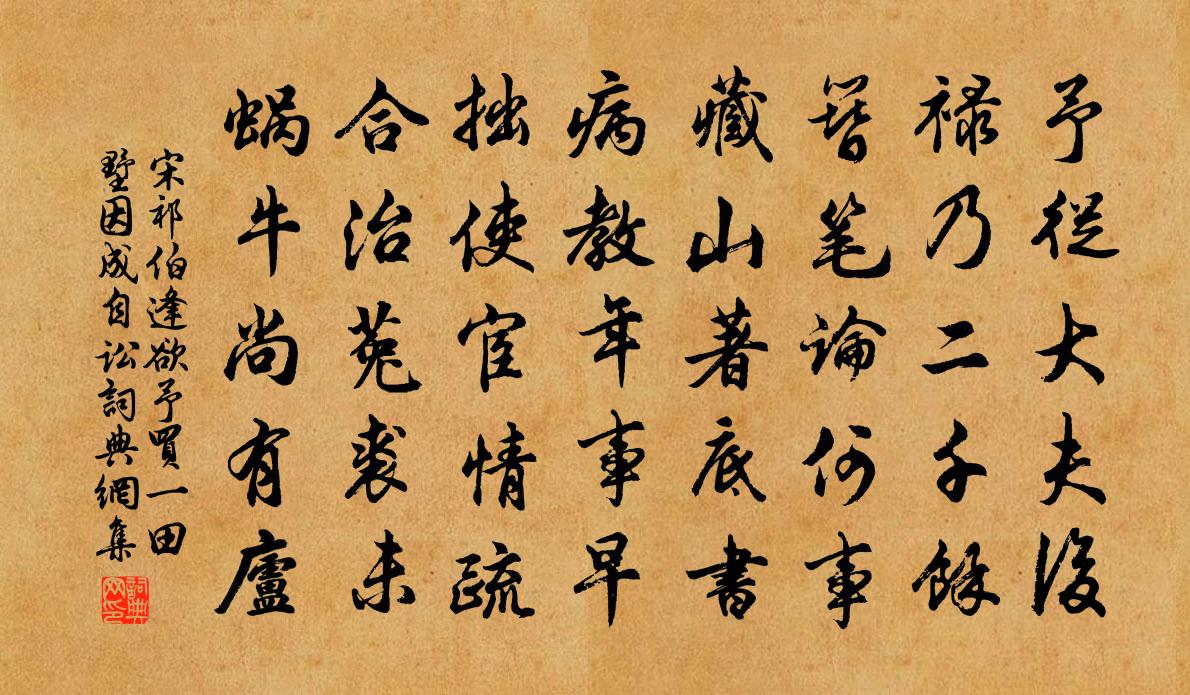 予從大夫後
禄乃二千餘
簪笔論何事
藏山著底書
病教年事早
拙使宦情疏
合治菟裘未
蝸牛尚有廬
宋祁伯逢欲予買一田
墅因成自訟詞典網集